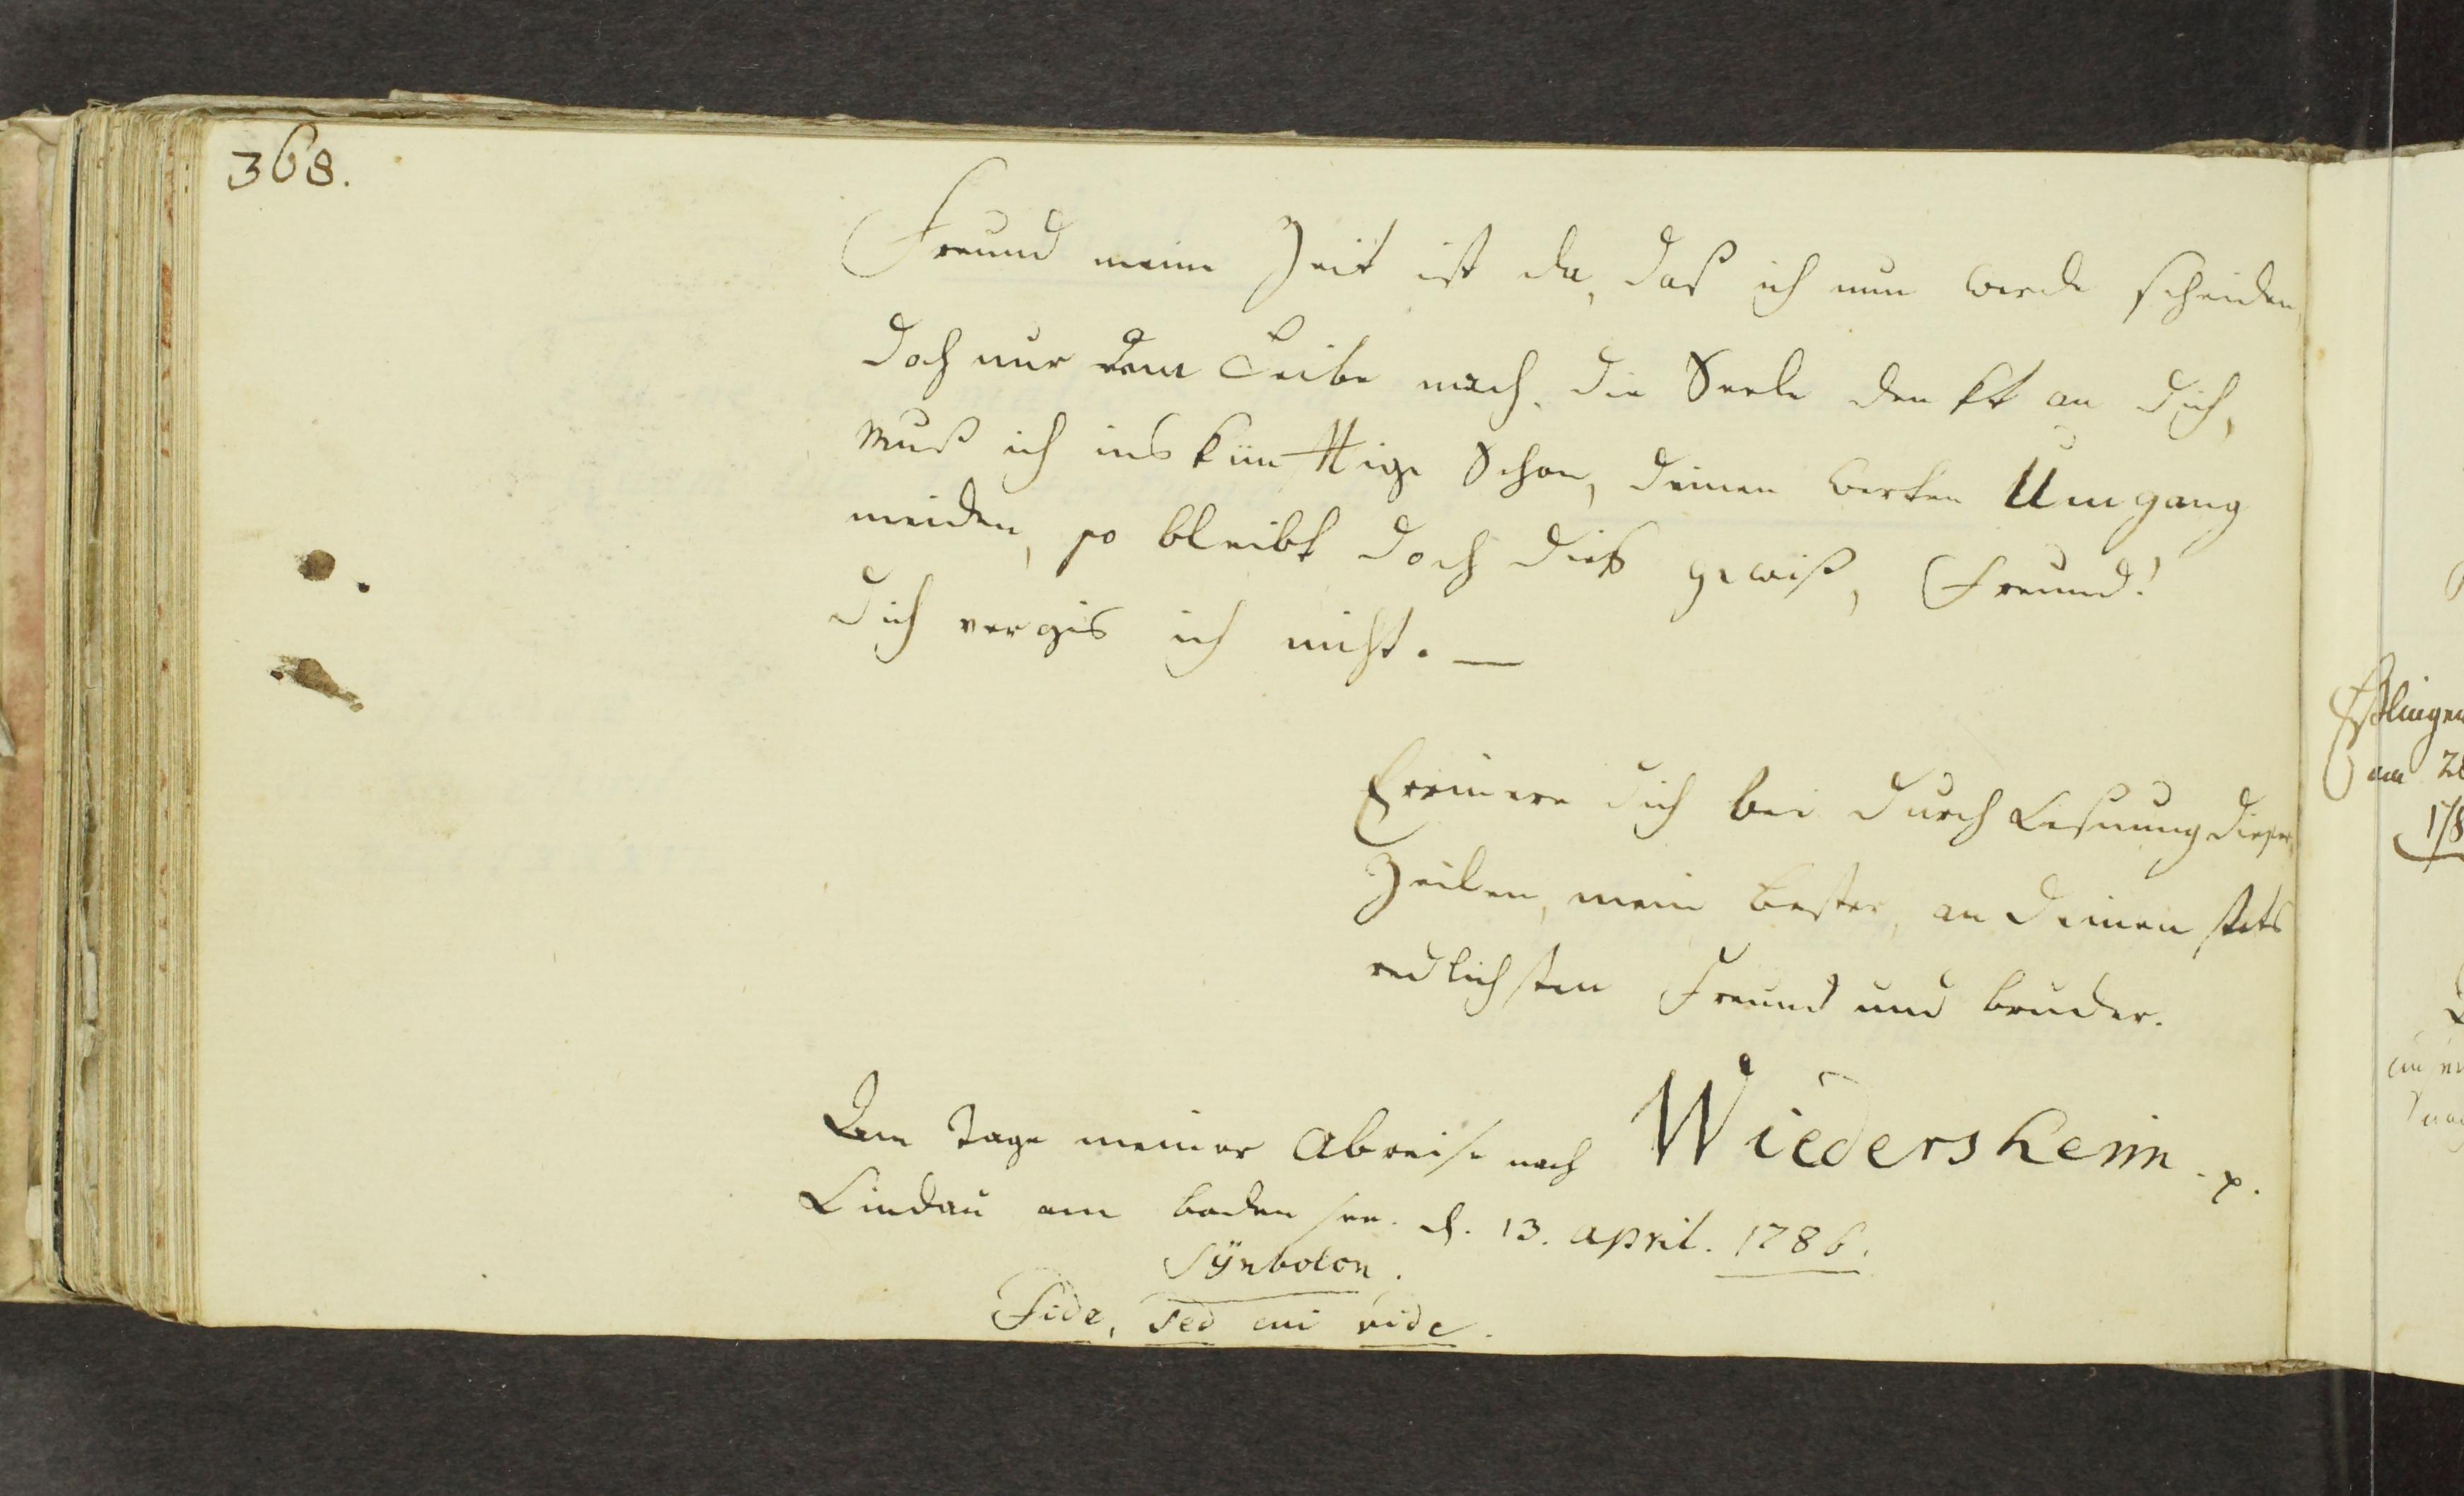 368.
Freund meine Zeit ist da, daß ich nun werde scheiden,
doch nur dem Leibe nach, die Seele denkt an dich,
muß ich inskünfttige Schon, deinen werten Umgang
meiden, so bleibt doch dieß gewiß, Freund!
dich vergis ich nicht. —
Errinere dich bei durch Lesnung dieser
Zeilen, mein bester, an deinen stets
redlichsten Freund und bruder.
Wiedersheim. p.
Am Tage meiner Abreise nach
Lindau am boden see. d. 13. april. 1786.
Sÿnbolon.
Fide, sed cui vide.
Eßlingen
am